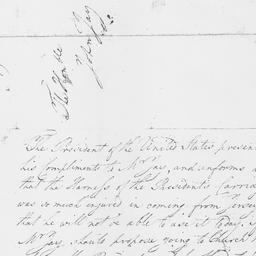 The Honble
John Jay
The President of the United States presen
his compliments to Mr Jay, and informs
that the Harness of the President's Carria
was so much injured in coming from Jersey
that he will not be able to use it today. 
Mr Jay should propose going to Church